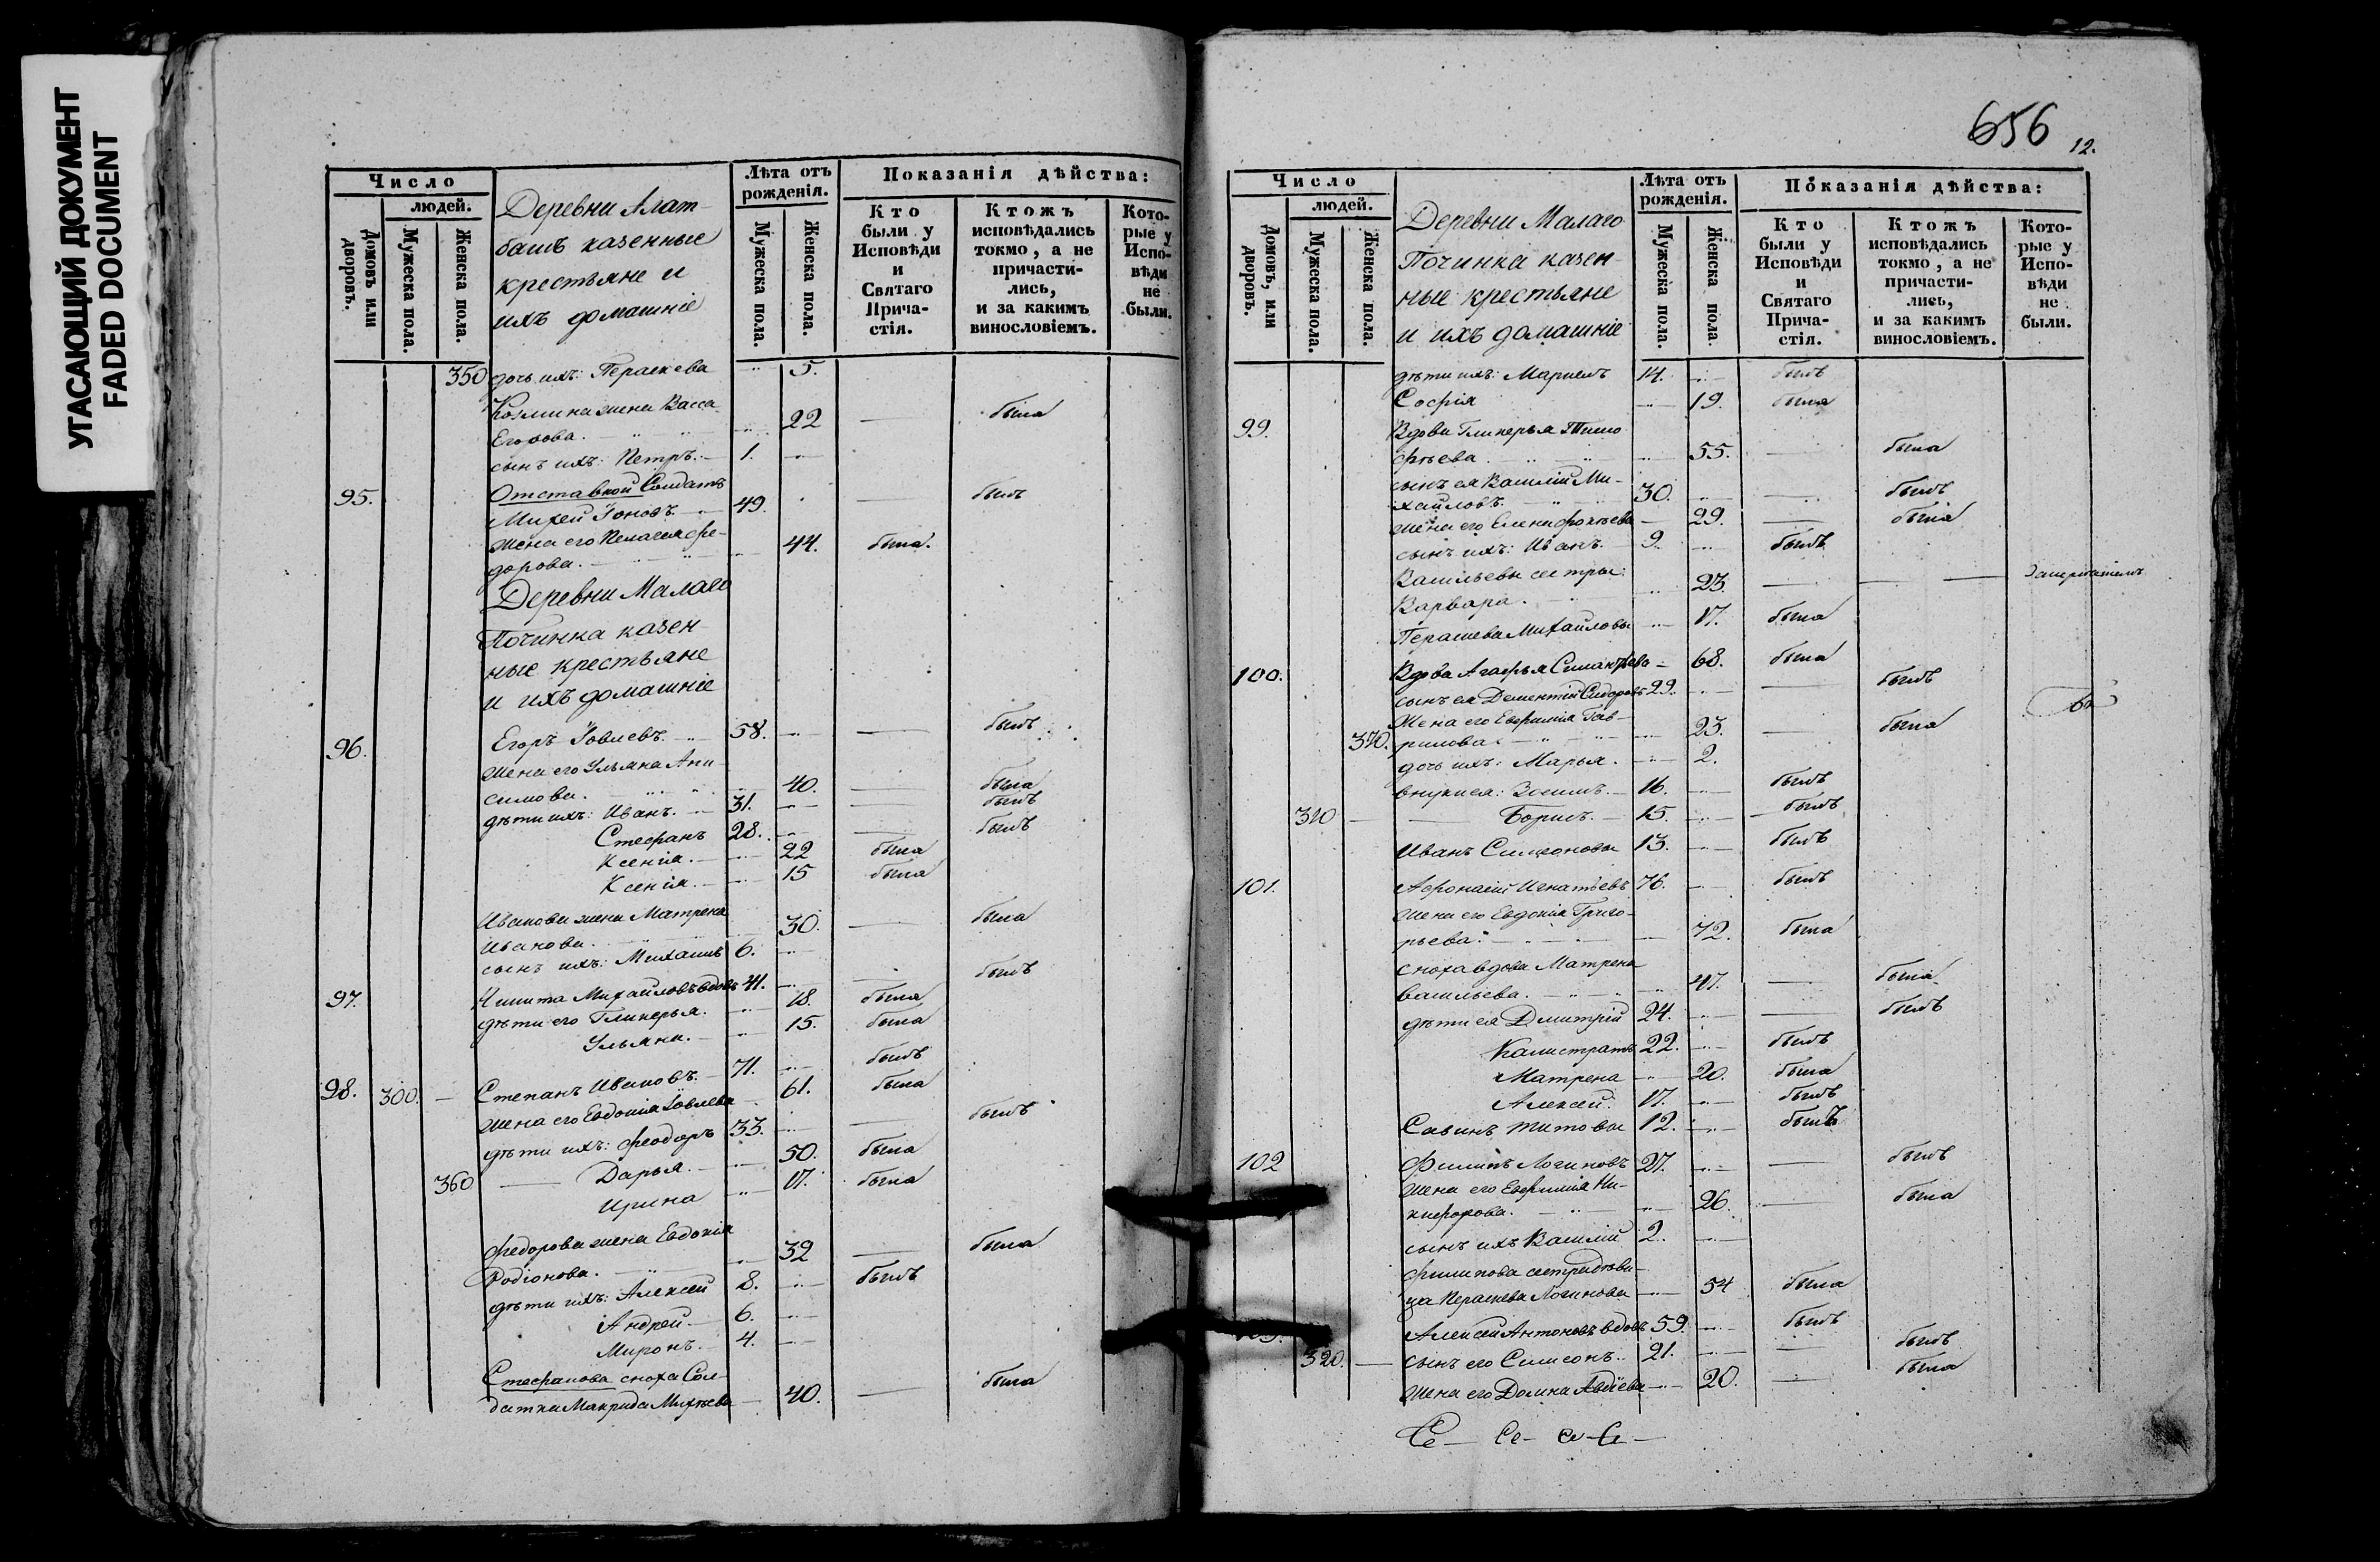 УГАСАЮЩИЙ ДОКУМЕНТ
FADED DOCUMENT
Число
людей.
Домовъ или дворовъ.
Мужеска пола.
Женска пола.
Деревни Алат-
башъ казенные
крестьяне и
ихъ домашніе
Лѣта отъ рожденія.
Мужеска пола.
Женска пола.
Показанія дѣйства:
Кто были у Исповѣди и Святаго Прича- стія.
Ктожъ исповѣдались токмо, а не причасти- лись, и за какимъ винословіемъ.
Кото- рые у Испо- вѣди не были.
350 дочь ихъ: Пераскева 5.
Козмина жена Васса
Егорова. 22 была
сынъ ихъ: Петръ. 1.
95. Отставной Солдатъ
Михей Іоновъ. 49. былъ
жена его Пелагея Фе-
дорова. 44. была.
Деревни Малаго
Починка казен-
ные крестьяне
и ихъ домашніе
96. Егоръ Іовлевъ. 58. былъ
жена его Ульяна Ани-
симова. 40. была
дѣти ихъ: Иванъ. 31. былъ
Стефанъ 28. былъ
Ксенія. 22 была
Ксенія. 15 была
Иванова жена Матрена
Иванова. 30. была
сынъ ихъ: Михаилъ 6.
97. Никита Михайловъ вдовъ 41. былъ
дѣти его Гликерья. 18. была
Ульяна. 15. была
98. 300. Степанъ Ивановъ. 71. былъ
жена его Евдокія Іовлева 61. была
дѣти ихъ: Феодоръ 33. былъ
360 Дарья. 50. была
Ирина 17. была
Федорова жена Евдокія
Родіонова. 32 была
дѣти ихъ: Алексей 8. былъ
Андрей. 6.
Миронъ. 4.
Стефанова сноха Сол-
датка Макрида Михѣева 40. была
656
12.
Число
людей.
Домовъ, или дворовъ.
Мужеска пола.
Женска пола.
Деревни Малаго
Починка казен-
ные крестьяне
и ихъ домашніе
Лѣта отъ рожденія.
Мужеска пола.
Женска пола
Показанія дѣйства:
Кто были у Исповѣди и Святаго Прича- стія.
Ктожъ исповѣдались токмо, а не причасти- лись, и за какимъ винословіемъ.
Кото- рые у Испо- вѣди не были.
дѣти ихъ: 14. былъ
Софія 19. была
99. Вдова Гликерья Тимо-
фѣева 55. была
сынъ ея Василій Ми-
хайловъ. 30. былъ
жена его Елена 29. была
сынъ ихъ: Иванъ. 9. былъ
Васильевы сестры:
Варвара. 23.
Пераскева Михайловы 17. была
100. Вдова Агафья 68. была
сынъ ея Дементій Сидоровъ 29. былъ
жена его Евфимія Гав-
370. рилова. 23. была
дочь ихъ: Марья. 2.
внуки ея: Зосимъ. 16. былъ
310 Борисъ. 15. былъ
Иванъ Симеоновы 13. былъ
101. Афонасій Игнатьевъ 76. былъ
жена его Евдокія Григо-
рьева. 72. была
сноха вдова Матрена
Васильева. 47. была
дѣти ея Дмитрій 24. былъ
Калистратъ 22. былъ
Матрена 20. была
Алексей. 17. былъ
Савинъ Титовы 12. былъ
102 Филипъ Логиновъ 27. былъ
жена его Евфимія Ни-
кифорова. 26. была
сынъ ихъ Василій 2.
Филипова сестра дѣви-
ца Пераскева Логинова 54 была
103. Алексей Антоновъ вдовъ 59. былъ
320. сынъ его Симеонъ. 21. былъ
жена его Домна Авдіева 20. была